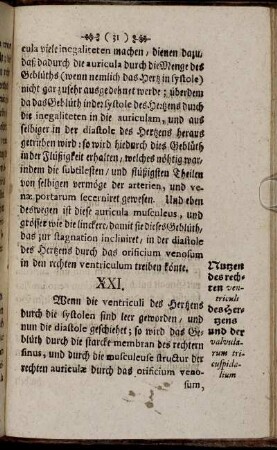 ( 31 )
cula viele inegaliteten machen, dienen dazu,
daß dadurch die auricula durch die Menge des
Geblüths (wenn nemlich das Hertz in systole)
nicht gar zu sehr ausgedehnet werde; überdem
da das Geblüth in der systole des Hertzens durch
die inegaliteten in die auriculam, und aus
selbiger in der diastole des Hertzens heraus
getrieben wird: so wird hiedurch dies Geblüth
in der Flüßigkeit erhalten, welches nöhtig war,
indem die subtilesten, und flüßigsten Theilen
von selbigen vermöge der arterien, und ve-
næ portarum secerniret gewesen. Und eben
deswegen ist diese auricula musculeus, und
grösser wie die linckere, damit sie dieses Geblüth,
das zur stagnation incliniret, in der diastole
des Hertzens durch das orificium venosum
in den rechten ventriculum treiben könte.
XXI.
Wenn die ventriculi des Hertzens
durch die systolen sind leer geworden, und
nun die diastole geschiehet; so wird das Ge-
blüth durch die starcke membran des rechtern
sinus, und durch die musculeuse structur der
rechten auriculæ durch das orificium veno-
sum,
Nutzen
des rech-
ten ven-
triculi
des Her-
tzens
und der
valvula-
rum tri-
cuspida-
lium